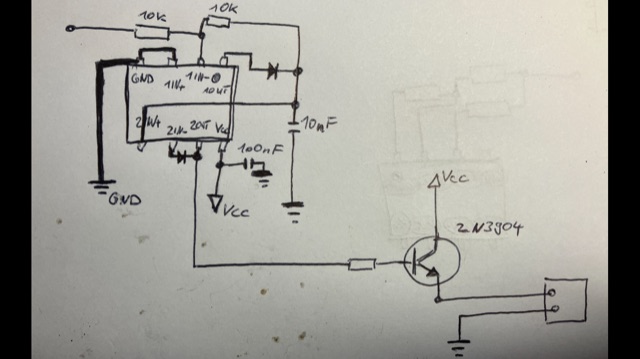 10k
10k
GND
1IN+
1IN-
1OUT
2IN+
2IN-
2OUT
Vcc
10nF
100nF
GND
Vcc
Vcc
2N3904